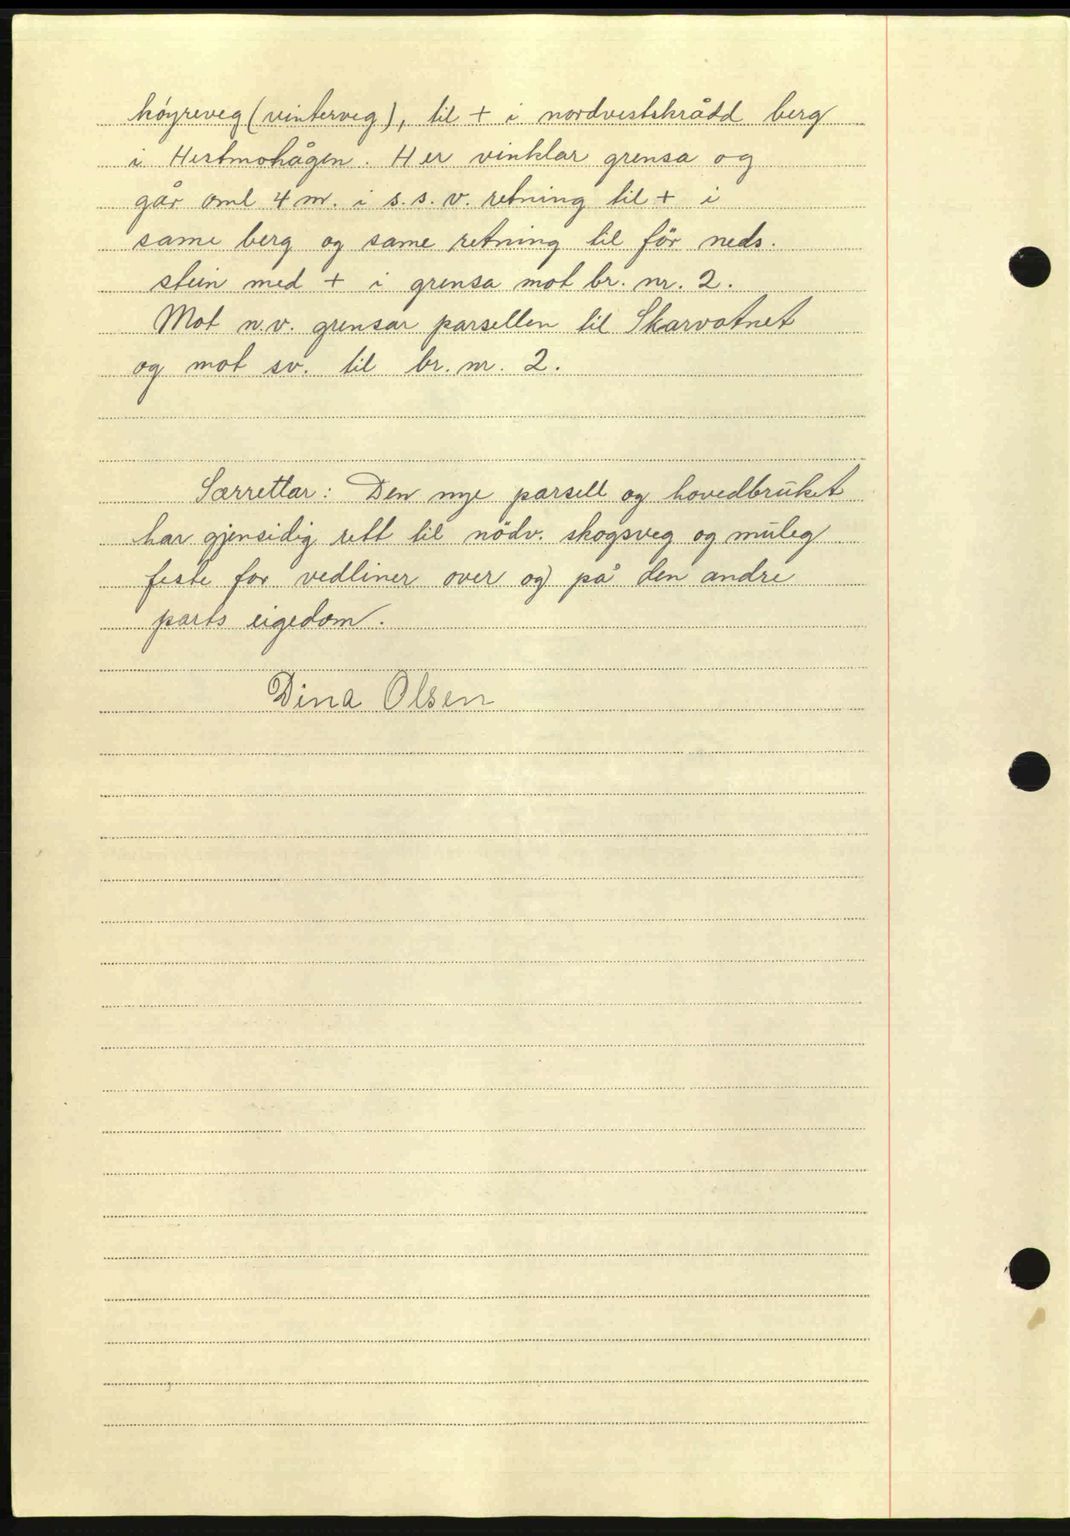 köyreveg (vinterveg), til + i nordvestskrådd berg
i Hestmohågen. Her vinklar grensa og
går oml 4 m. i s.s.v. retning til + i
same berg og same retning til för neds.
stein med + i grensa mot br. nr. 2.
Mot n.v. grensar parsellen til Skarvatnet
og mot sv. til br. nr. 2.
Særrettar: Den nye parsell og hovedbruket
har gjensidig rett til nödv. skogsveg og muleg
feste for vedliner over og på den andre
parts eigedom.
Dina Olsen